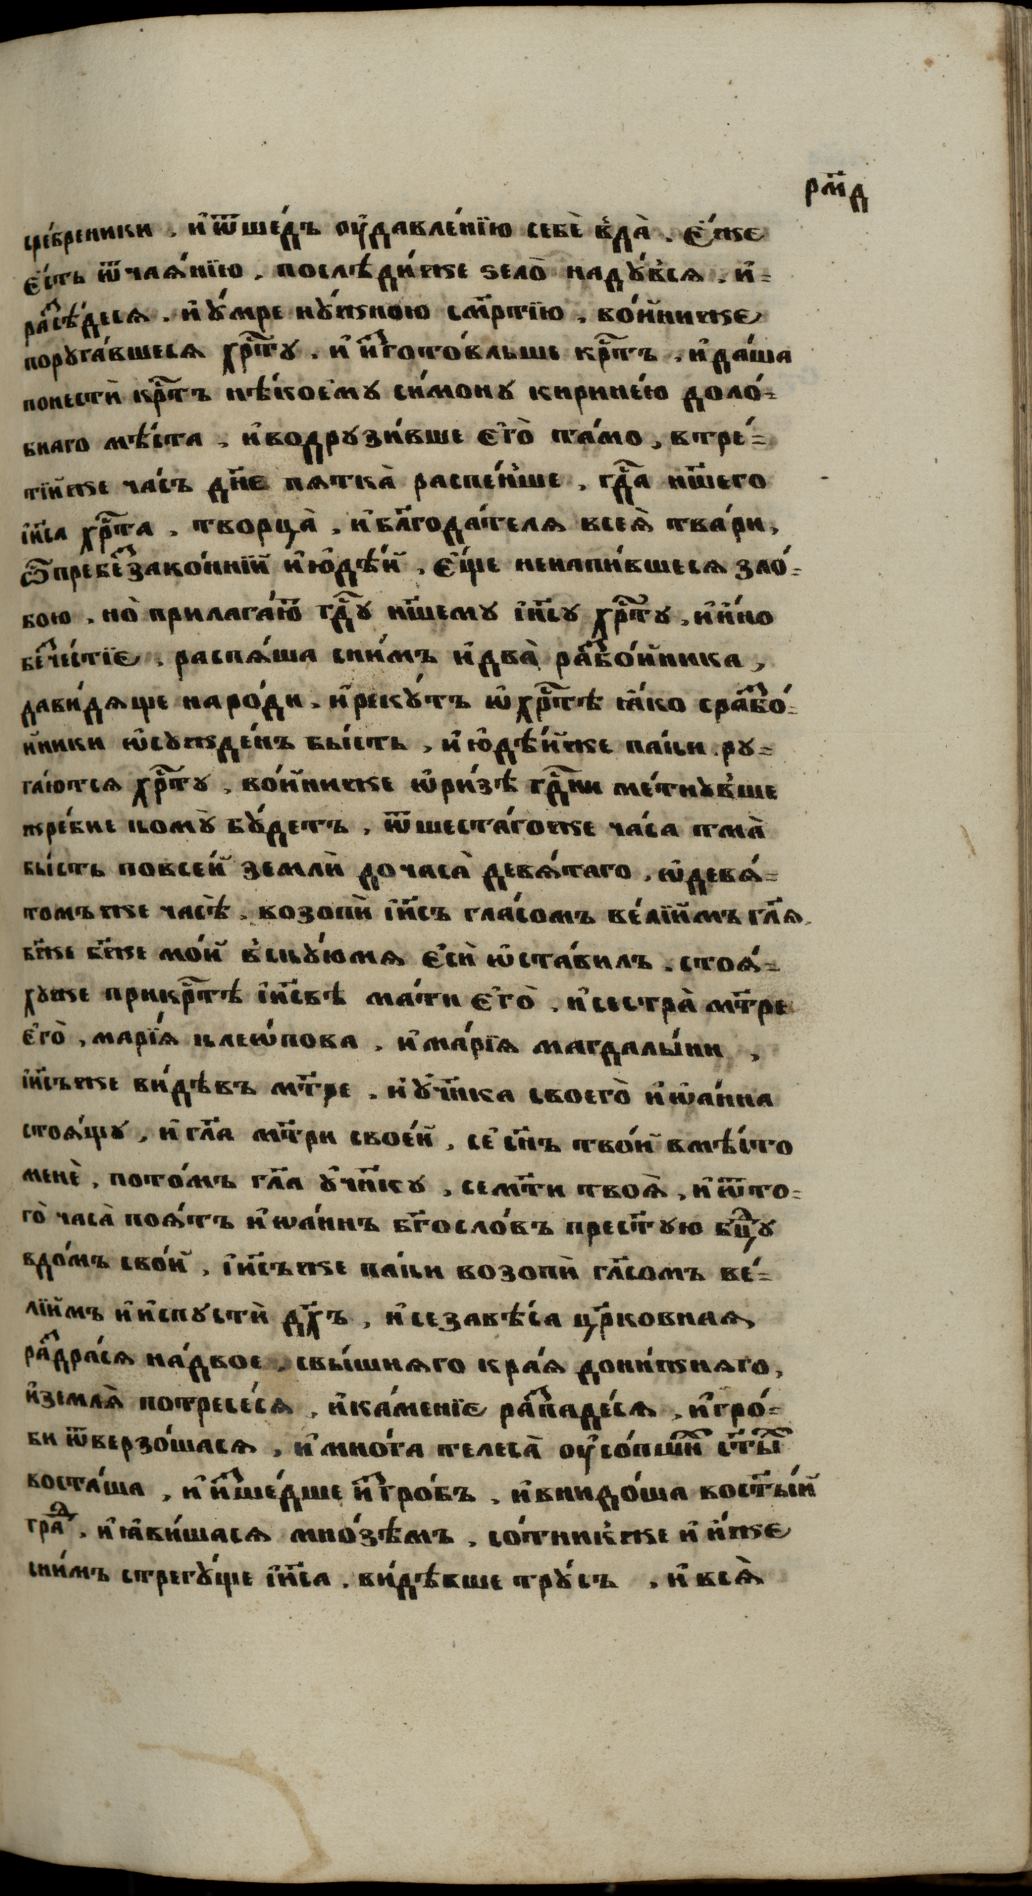 рм҃д
сре́бреники . и҆ ѿше́дъ оу҆давле́нїю себѐ в̾да̀ . є҆́же
є҆́сть ѿча́ѧнїю . послѣди́же ѕело̀ наду́всѧ . и҆-
разсѣ́десѧ . и҆ у́мре ну́жною см҃ртїю , во́иниже
поруга́вшесѧ хрⷭ҇ту . и҆ и҆згото́вльше крⷭ҇тъ . и҆ да́ша
понестѝ крⷭ҇тъ нѣ́коему си́мону кирине́ю до ло́-
бнаго мѣ́ста . и҆ водрузи́вше є҆го̀ та́мо , в тре́-
тїйже ча́съ дн҃е пѧтка̀ распе́нше . гдⷭ҇а нш҃его
і҆и҃са хрⷭ҇та . творца̀ . и҆ бл҃года́телѧ всеѧ̀ тва́ри ,
ѿ пребеззако́ннїй и҆юдѣ́й . є҆́ще ненапи́вшесѧ зло́-
бою . но̀ прилага́ю гдⷭ҇у нш҃ему і҆и҃су хрⷭ҇ту . и҆ и҆́но
безче́стїе . распѧ́ша сни́мъ и҆ два̀ разбо́йника ,
да ви́дѧще наро́ди . и҆ реку́тъ ѡ҆ хрⷭ҇тѣ ꙗ҆́ко с разбо́-
йники ѡ҆сужде́нъ бы́сть , и҆юдѣ́йже па́ки ру-
га́ютсѧ хрⷭ҇ту , во́иниже ѡ҆ ри́зѣ гдⷭ҇ни метну́вше
жре́бие кому̀ бу́детъ , ѿ шеста́гоже часа̀ тма̀
бы́сть по все́й землѝ до часа̀ девѧ́таго , ѡ҆ девѧ́-
томъже часѣ̀ . возопѝ і҆и҃съ гла́сомъ ве́лїимъ гл҃ѧ .
бж҃е бж҃е мо́й в̾ску́ю мѧ є҆сѝ ѡ҆ста́вилъ . стоѧ́-
хуже при крⷭ҇тѣ і҆и҃свѣ ма́ти є҆го̀ . и҆ сестра̀ мт҃ре
є҆го̀ , марі́ѧ клеѡ́пова . и҆ ма́рїѧ магдалы́ни ,
і҆и҃съже ви́дѣвъ мт҃ре . и҆ уч҃ника своего̀ и҆ѡа́нна
стоѧ́щу , и҆ гл҃а мт҃ри свое́й , се́ сн҃ъ тво́й вмѣ́сто
менѐ , пото́мъ гл҃а уч҃нку , се мт҃и твоѧ̀ , и҆ ѿ то-
го̀ часа̀ поѧ́тъ и҆ѡа́ннъ бг҃осло́въ прест҃ую бцⷣу
в до́мъ сво́й , і҆и҃съже па́ки возопѝ гл҃сомъ ве́-
лїимъ и҆ и҆спустѝ дх҃ъ , и҆ се завѣ́са цр҃ковнаѧ
раздра́сѧ на́двое . свы́шнѧго кра́ѧ до ни́жнѧго ,
и҆ землѧ̀ потресе́сѧ , и҆ ка́менїе распаде́сѧ , и҆ гро́-
би ѿверзо́шасѧ , и҆ мно́га телеса̀ оу҆со́пшихъ ст҃ы́хъ
воста́ша , и҆ и҆зше́дше и҆з гро́бъ . и҆ внидо́ша во ст҃ы́й
градъ . и҆ ꙗ҆ви́шасѧ мно́зѣмъ , со́тникже и҆ и҆́же
сни́мъ стрегу́ще і҆и҃са . ви́дѣвше тру́съ , и҆ всѧ̀